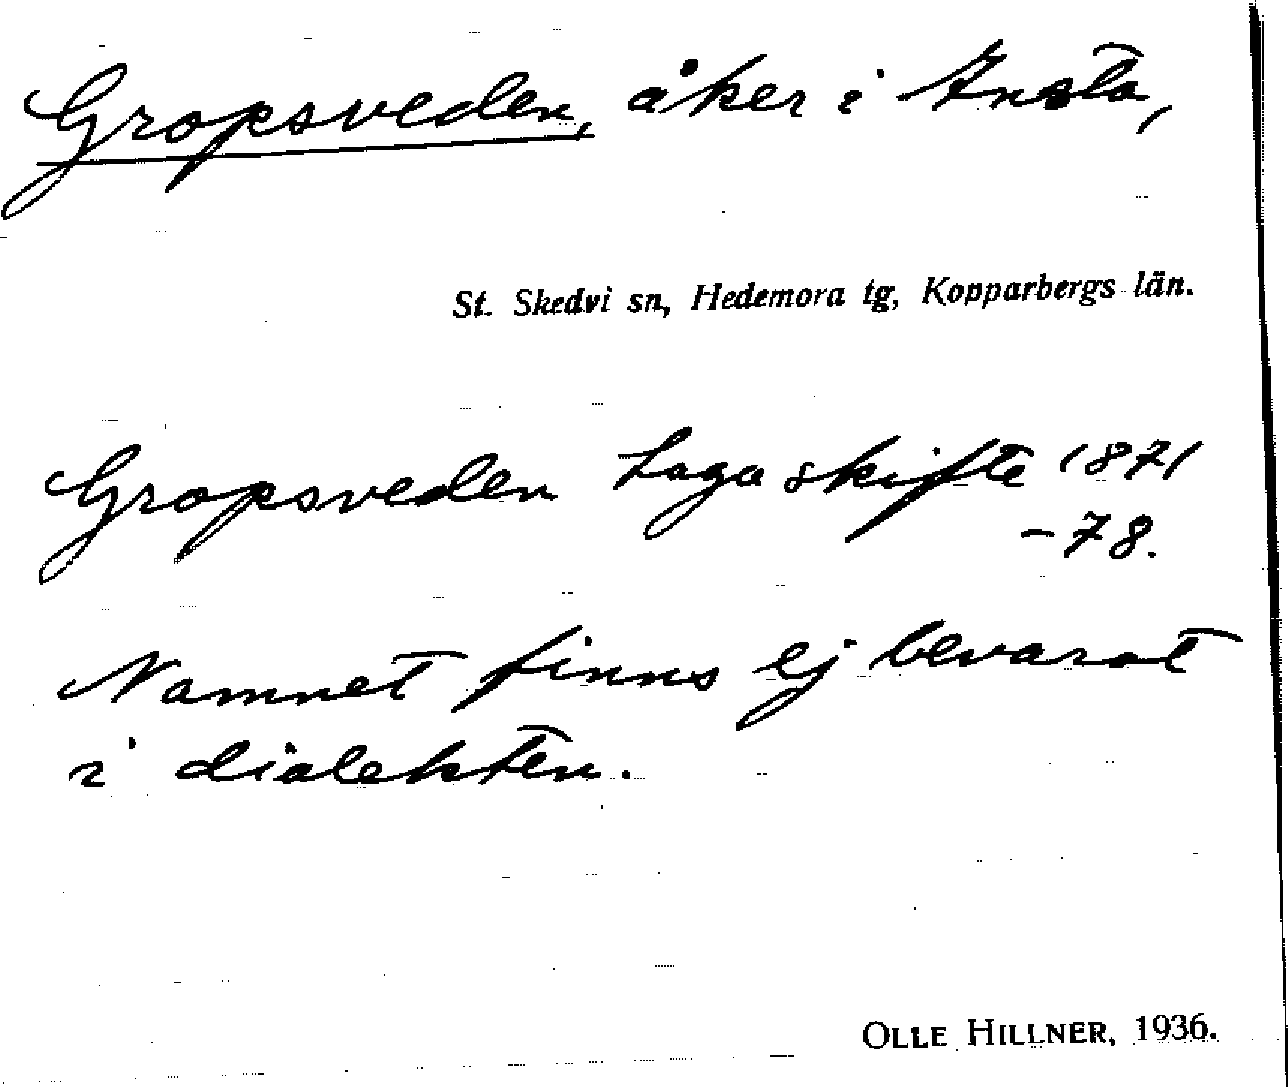 Gropsveden, åker i Knsta,
St. Skedvi sn, Hedemora tg, Kopparbergs län.
Gropsveden Laga skifte 1871
-78.
Namnet finns ej bevarat
i dialekten.
OLLE HILLNER, 1936.